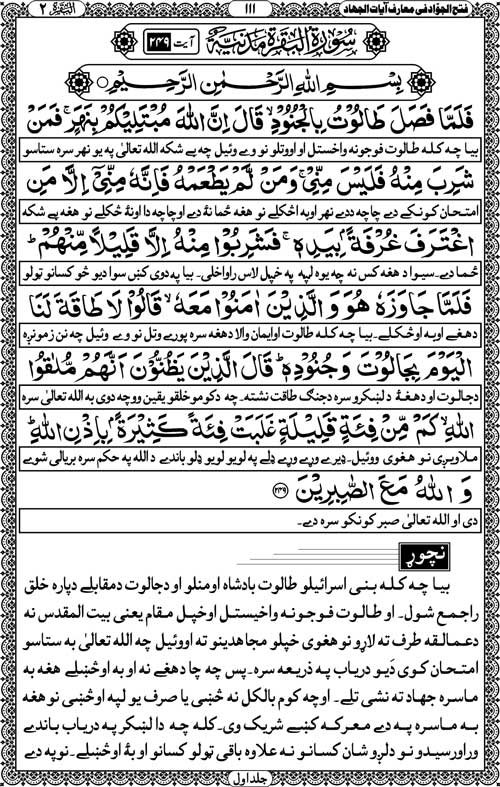 فتح الجوّاد فی معارف آیات الجهاد ۱۱۱ البقرة ۲
سُوْرَةُ الْبَقَرَةِ مَدَنِيَّةٌ آیت ۲۴۹
بِسْمِ اللهِ الرَّحْمٰنِ الرَّحِيْمِ
فَلَمَّا فَصَلَ طَالُوْتُ بِالْجُنُوْدِ ۙ قَالَ اِنَّ اللهَ مُبْتَلِيْكُمْ بِنَهَرٍ ۚ فَمَنْ
بیا چه کله طالوت فوجونه واخستل او اووتلو نو وے وئیل چه بے شکه الله تعالیٰ په یو نهر سره ستاسو
شَرِبَ مِنْهُ فَلَيْسَ مِنِّيْ ۚ وَمَنْ لَّمْ يَطْعَمْهُ فَاِنَّهٗ مِنِّيْۤ اِلَّا مَنِ
امتحان کونکے دے چاچه ددے نهر اوبه اڅکلے نو هغه ځما نۀ دے اوچاچه دا اونۀ څکلے نو هغه بے شکه
اغْتَرَفَ غُرْفَةًۢ بِيَدِهٖ ۚ فَشَرِبُوْا مِنْهُ اِلَّا قَلِيْلًا مِّنْهُمْ ؕ
ځما دے۔ سیوا د هغه کس نه چه یوه لپه په خپل لاس راواخلی۔ بیا په دوی کښ سوا دیو څو کسانو ټولو
فَلَمَّا جَاوَزَهٗ هُوَ وَالَّذِيْنَ اٰمَنُوْا مَعَهٗ ۙ قَالُوْا لَا طَاقَةَ لَنَا
دهغے اوبه اوڅکلے۔ بیا چه کله طالوت اوایمان والا دهغه سره پورے وتل نو وے وئیل چه نن زمونږه
الْيَوْمَ بِجَالُوْتَ وَجُنُوْدِهٖ ؕ قَالَ الَّذِيْنَ يَظُنُّوْنَ اَنَّهُمْ مُّلٰقُوا
دجالوت او دهغۀ د لښکرو سره دجنګ طاقت نشته۔ چه دکومو خلقو یقین ووچه دوی به الله تعالیٰ سره
اللهِ ۙ كَمْ مِّنْ فِئَةٍ قَلِيْلَةٍ غَلَبَتْ فِئَةً كَثِيْرَةًۢ بِاِذْنِ اللهِ ؕ
ملاویږی نو هغوی ووئیل۔ ډیرے ورے ورے ډلے په لویو لویو ډلو باندے د الله په حکم سره بریالی شوے
وَ اللهُ مَعَ الصّٰبِرِيْنَ ۝۲۴۹
دی او الله تعالیٰ صبر کونکو سره دے۔
نچوړ
بیا چه کله بنی اسرائیلو طالوت بادشاه اومنلو او دجالوت دمقابلے دپاره خلق
راجمع شول۔ او طالوت فوجونه واخیستل اوخپل مقام یعنی بیت المقدس نه
دعمالقه طرف ته لاړو نو هغوی خپلو مجاهدینو ته اووئیل چه الله تعالیٰ به ستاسو
امتحان کوی دَیو دریاب په ذریعه سره۔ پس چه چا دهغے نه او به اوڅښلے هغه به
ماسره جهاد ته نشی تلے۔ اوچه کوم بالکل نه څښی یا صرف یو لپه اوڅښی نو هغه
به ماسره په دے معرکه کښے شریک وی۔ کله چه دا لښکر په دریاب باندے
وراورسیدو نو دلږو شان کسانو نه علاوه باقی ټولو کسانو اوبۀ اوڅښلے۔ نو په دے
جلد اول